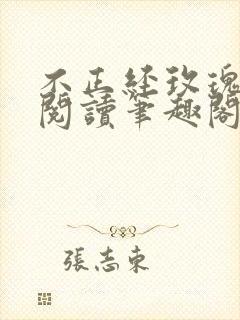 不正经玫瑰
閱讀筆趣閣
張志東